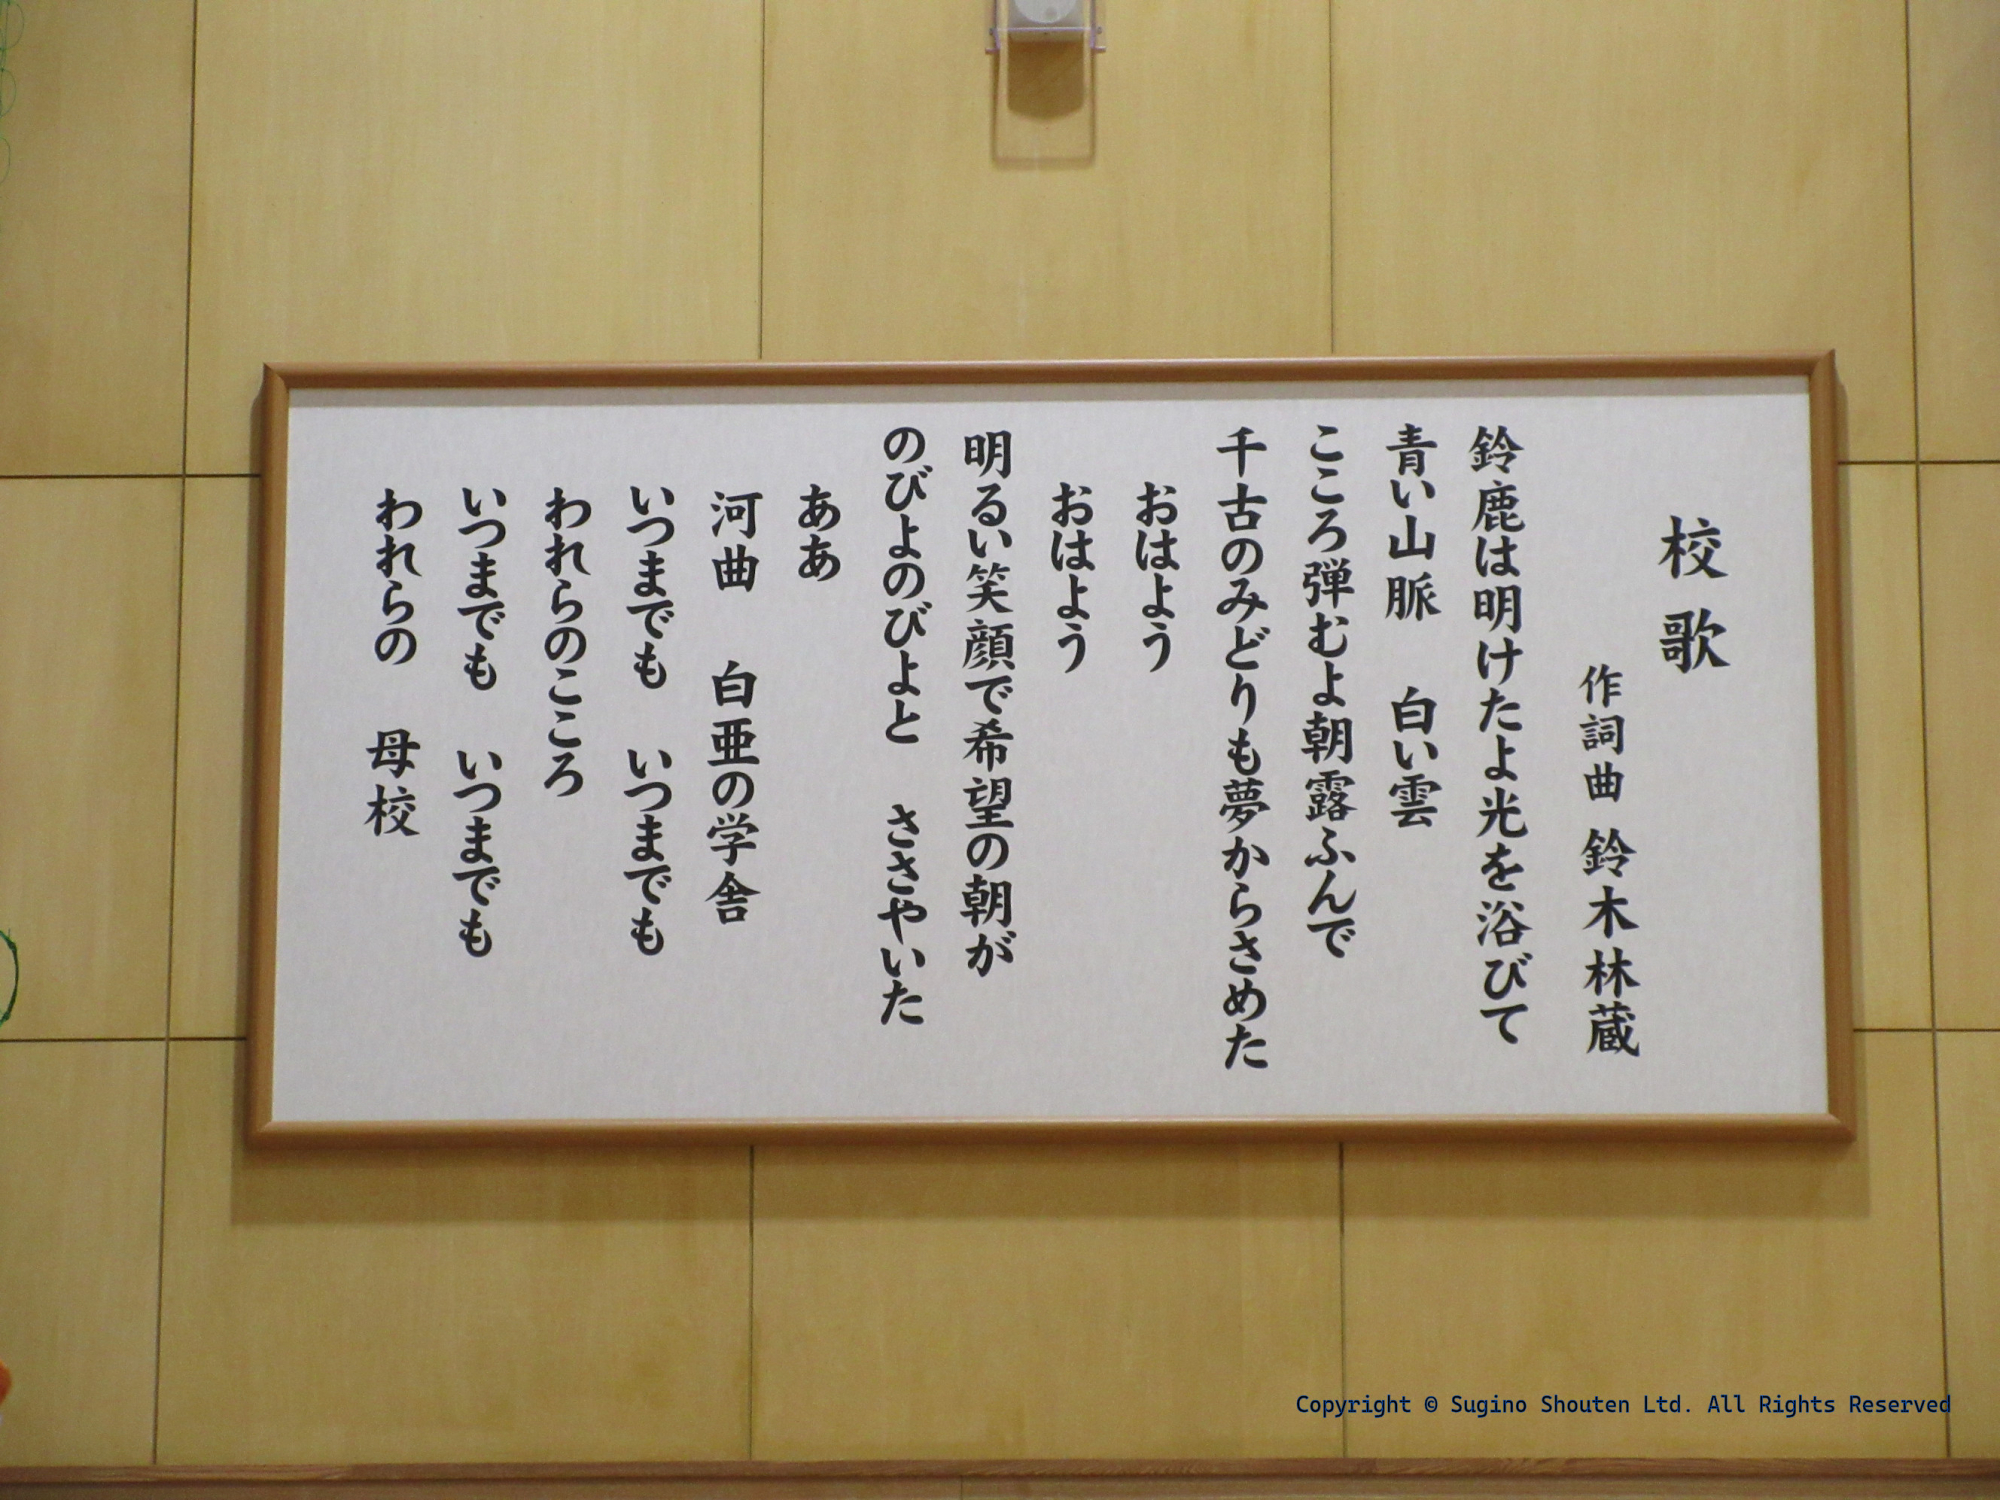 校歌
作詞曲 鈴木林蔵
鈴鹿は明けたよ光を浴びて
青い山脈　白い雲
こころ弾むよ朝露ふんで
千古のみどりも夢からさめた
おはよう
おはよう
明るい笑顔で希望の朝が
のびよのびよと　ささやいた
ああ
河曲　白亜の学舎
いつまでも　いつまでも
われらのこころ
いつまでも　いつまでも
われらの　母校
Copyright © Sugino Shouten Ltd. All Rights Reserved